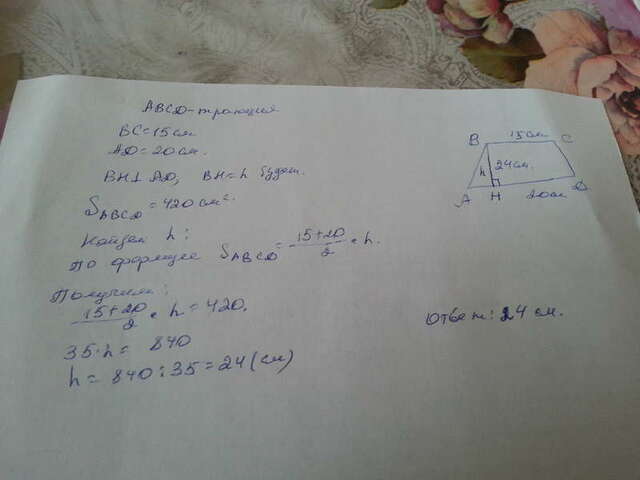 ABCD-трапеция
BC=15см
AD=20см.
BH⊥AD, BH=h будет.
S_ABCD=420см².
Найдем h:
По формуле S_ABCD=15+20/2·h.
Получим:
15+20/2·h=420.
35·h=840
h=840:35=24(см)
B 15см C
h 24см.
A H 20см D
Ответ: 24 см.